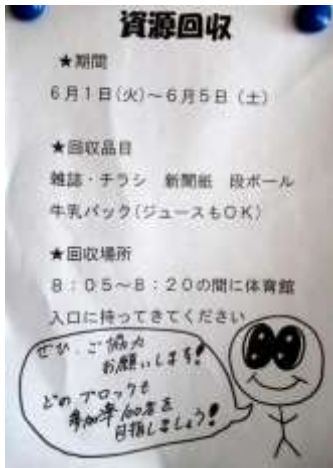 資源回収
★期間
6月1日(火)~6月5日(土)
★回収品目
雑誌・チラシ 新聞紙 段ボール
牛乳パック(ジュースもOK)
★回収場所
8:05~8:20の間に体育館
入口に持ってきてください
ぜひ、ご協力
お願いします!
どのブロックも
参加率100%を
目指しましょう!